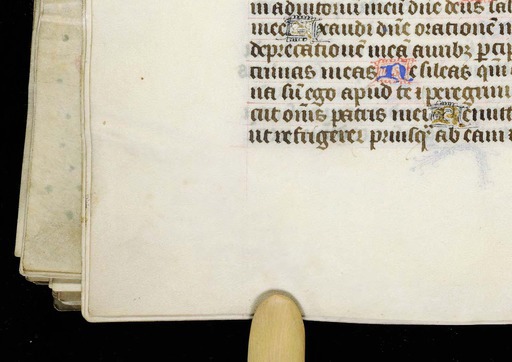 in adiutoriū meū dn̄e deus salu
mee Exaudi dn̄e orationē m
deprecationē meā auribꝫ ꝑcip
crimas meas Ne sileas qm̄
na sū ego apud te ⁊ peregrinus
cut om̄s patres mei Remitt
ut refrigerer priusq̄ ab eam